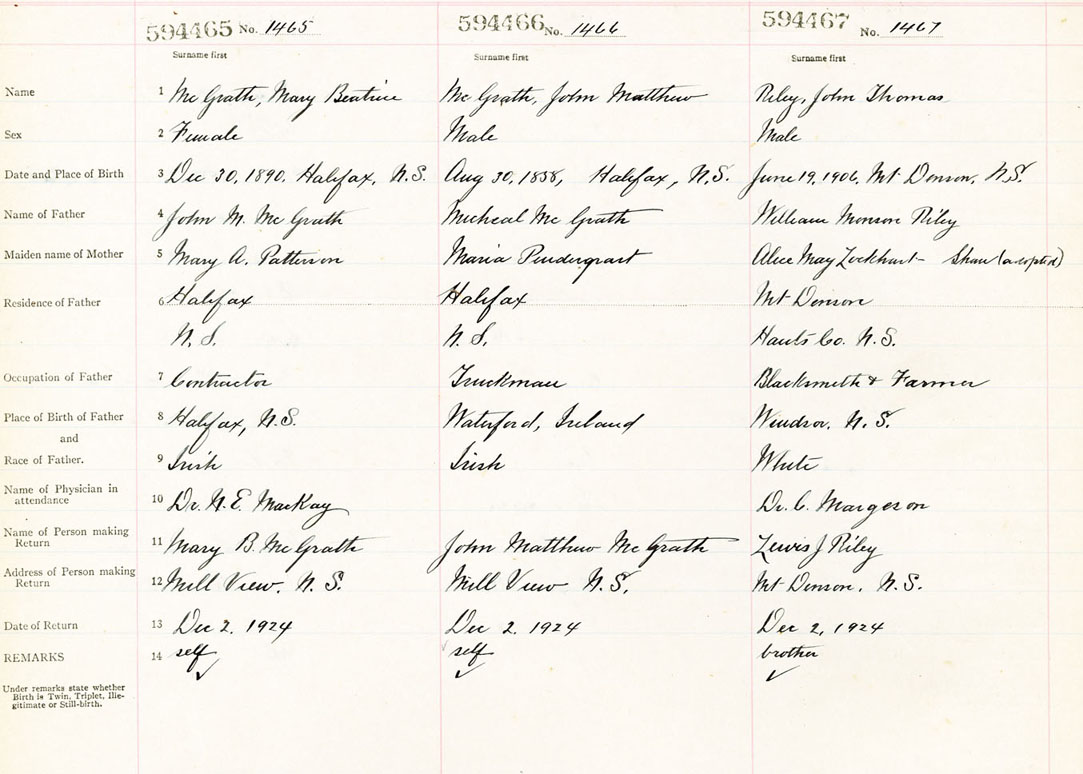 594465 No. 1465 594466 No. 1466 594467 No. 1467
Surname first Surname first Surname first
Name 1 Mc Grath, Mary Beatrice Mc Grath, John Matthew Riley, John Thomas
Sex 2 Female Male Male
Date and Place of Birth 3 Dec 30, 1890. Halifax, N.S. Aug 30, 1858, Halifax, N.S. June 19, 1906, Mt Denson, N.S.
Name of Father 4 John M. Mc Grath Micheal Mc Grath William Monson Riley
Maiden name of Mother 5 Mary A. Patterson Maria Pendergrast Alice May Lockhart - Shaw (adopted)
Residence of Father 6 Halifax Halifax Mt Denson
N. S. N. S. Hants Co. N.S.
Occupation of Father 7 Contractor Truckman Blacksmith & Farmer
Place of Birth of Father 8 Halifax, N.S. Waterford, Ireland Windsor, N. S.
and
Race of Father. 9 Irish Irish White
Name of Physician in
attendance 10 Dr. N. E. MacKay Dr. C. Margeson
Name of Person making
Return 11 Mary B. Mc Grath John Matthew Mc Grath Lewis J Riley
Address of Person making
Return 12 Mill View. N. S. Mill View N. S. Mt Denson, N.S.
Date of Return 13 Dec 2, 1924 Dec 2, 1924 Dec 2, 1924
REMARKS 14 self self brother
Under remarks state whether
Birth is Twin, Triplet, Ille-
gitimate or Still-birth.